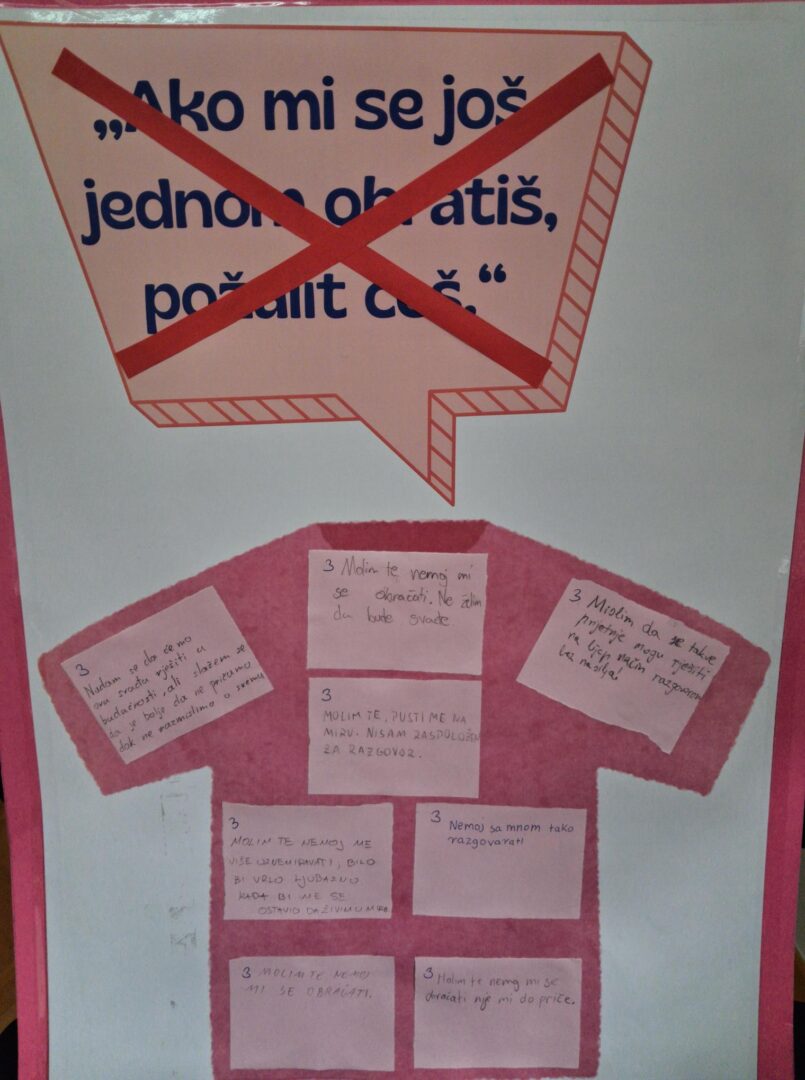 „Ako mi se još
jednom obratiš,
požalit ćeš.“
3 Molim te nemoj mi
se obraćati. Ne želim
da bude svađe
3
Nadam se da ćemo
ovu svađu riješiti u
budućnosti, ali slažem se
da je bolje da ne pričamo
dok ne razmislimo o svemu
3 Mislim da se takve
prijetnje mogu riješiti
na lijep način razgovorom
bez nasilja!
3
MOLIM TE, PUSTI ME NA
MIRU. NISAM RASPOLOŽEN
ZA RAZGOVOR.
3
MOLIM TE NEMOJ ME
VIŠE UZNEMIRAVATI, BILO
BI VRLO LJUBAZNO
KADA BI ME SE
OSTAVIO DA ŽIVIM U MIRU
3 Nemoj sa mnom tako
razgovarati
3 MOLIM TE NEMOJ
MI SE OBRAĆATI.
3 Molim te nemoj mi se
obraćati nije mi do priče.